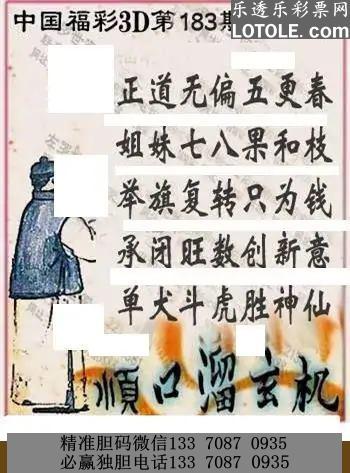 乐透乐彩票网
www.LOTOLE.com
中国福彩3D第183期
正道无偏五更春
姐妹七八果和枝
举旗复转只为钱
承闭旺数创新意
单犬斗虎胜神仙
顺口溜玄机
精准胆码微信133 7087 0935
必赢独胆电话133 7087 0935